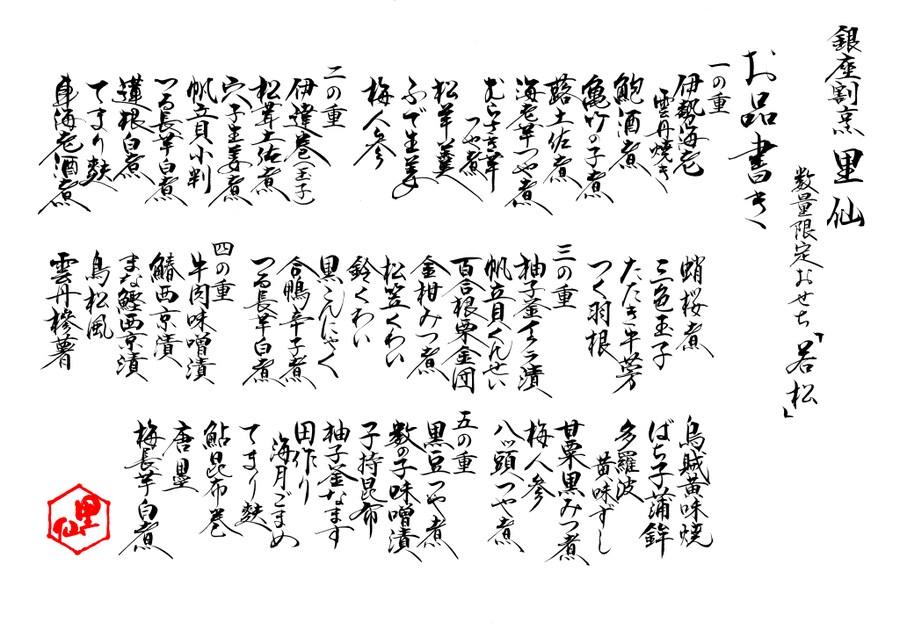 銀座割烹 里仙
数量限定おせち「若松」
お品書き
一の重
伊勢海老
雲丹焼き
鮑酒煮
亀竹の子煮
蕗土佐煮
海老芋つや煮
むらさき芋
つや煮
松羊羹
ふで生姜
梅人参
二の重
伊達巻(玉子)
松茸土佐煮
穴子生姜煮
帆立貝小判
つる長芋白煮
蓮根白煮
てまり麩
車海老酒煮
蛸桜煮
三色玉子
たたき牛蒡
つく羽根
三の重
柚子釜イクラ漬
帆立貝くんせい
百合根栗金団
金柑みつ煮
松笠くわい
鈴くわい
黒こんにゃく
合鴨辛子煮
つる長芋白煮
四の重
牛肉味噌漬
鰆西京漬
まな鰹西京漬
鳥松風
雲丹糝薯
烏賊黄味焼
ばち子蒲鉾
多羅波
黄味ずし
甘粟黒みつ煮
梅人参
八ッ頭つや煮
五の重
黒豆つや煮
数の子味噌漬
子持昆布
柚子釜なます
田作り
海月ごまめ
てまり麩
鮎昆布巻
唐墨
梅長芋白煮
里仙